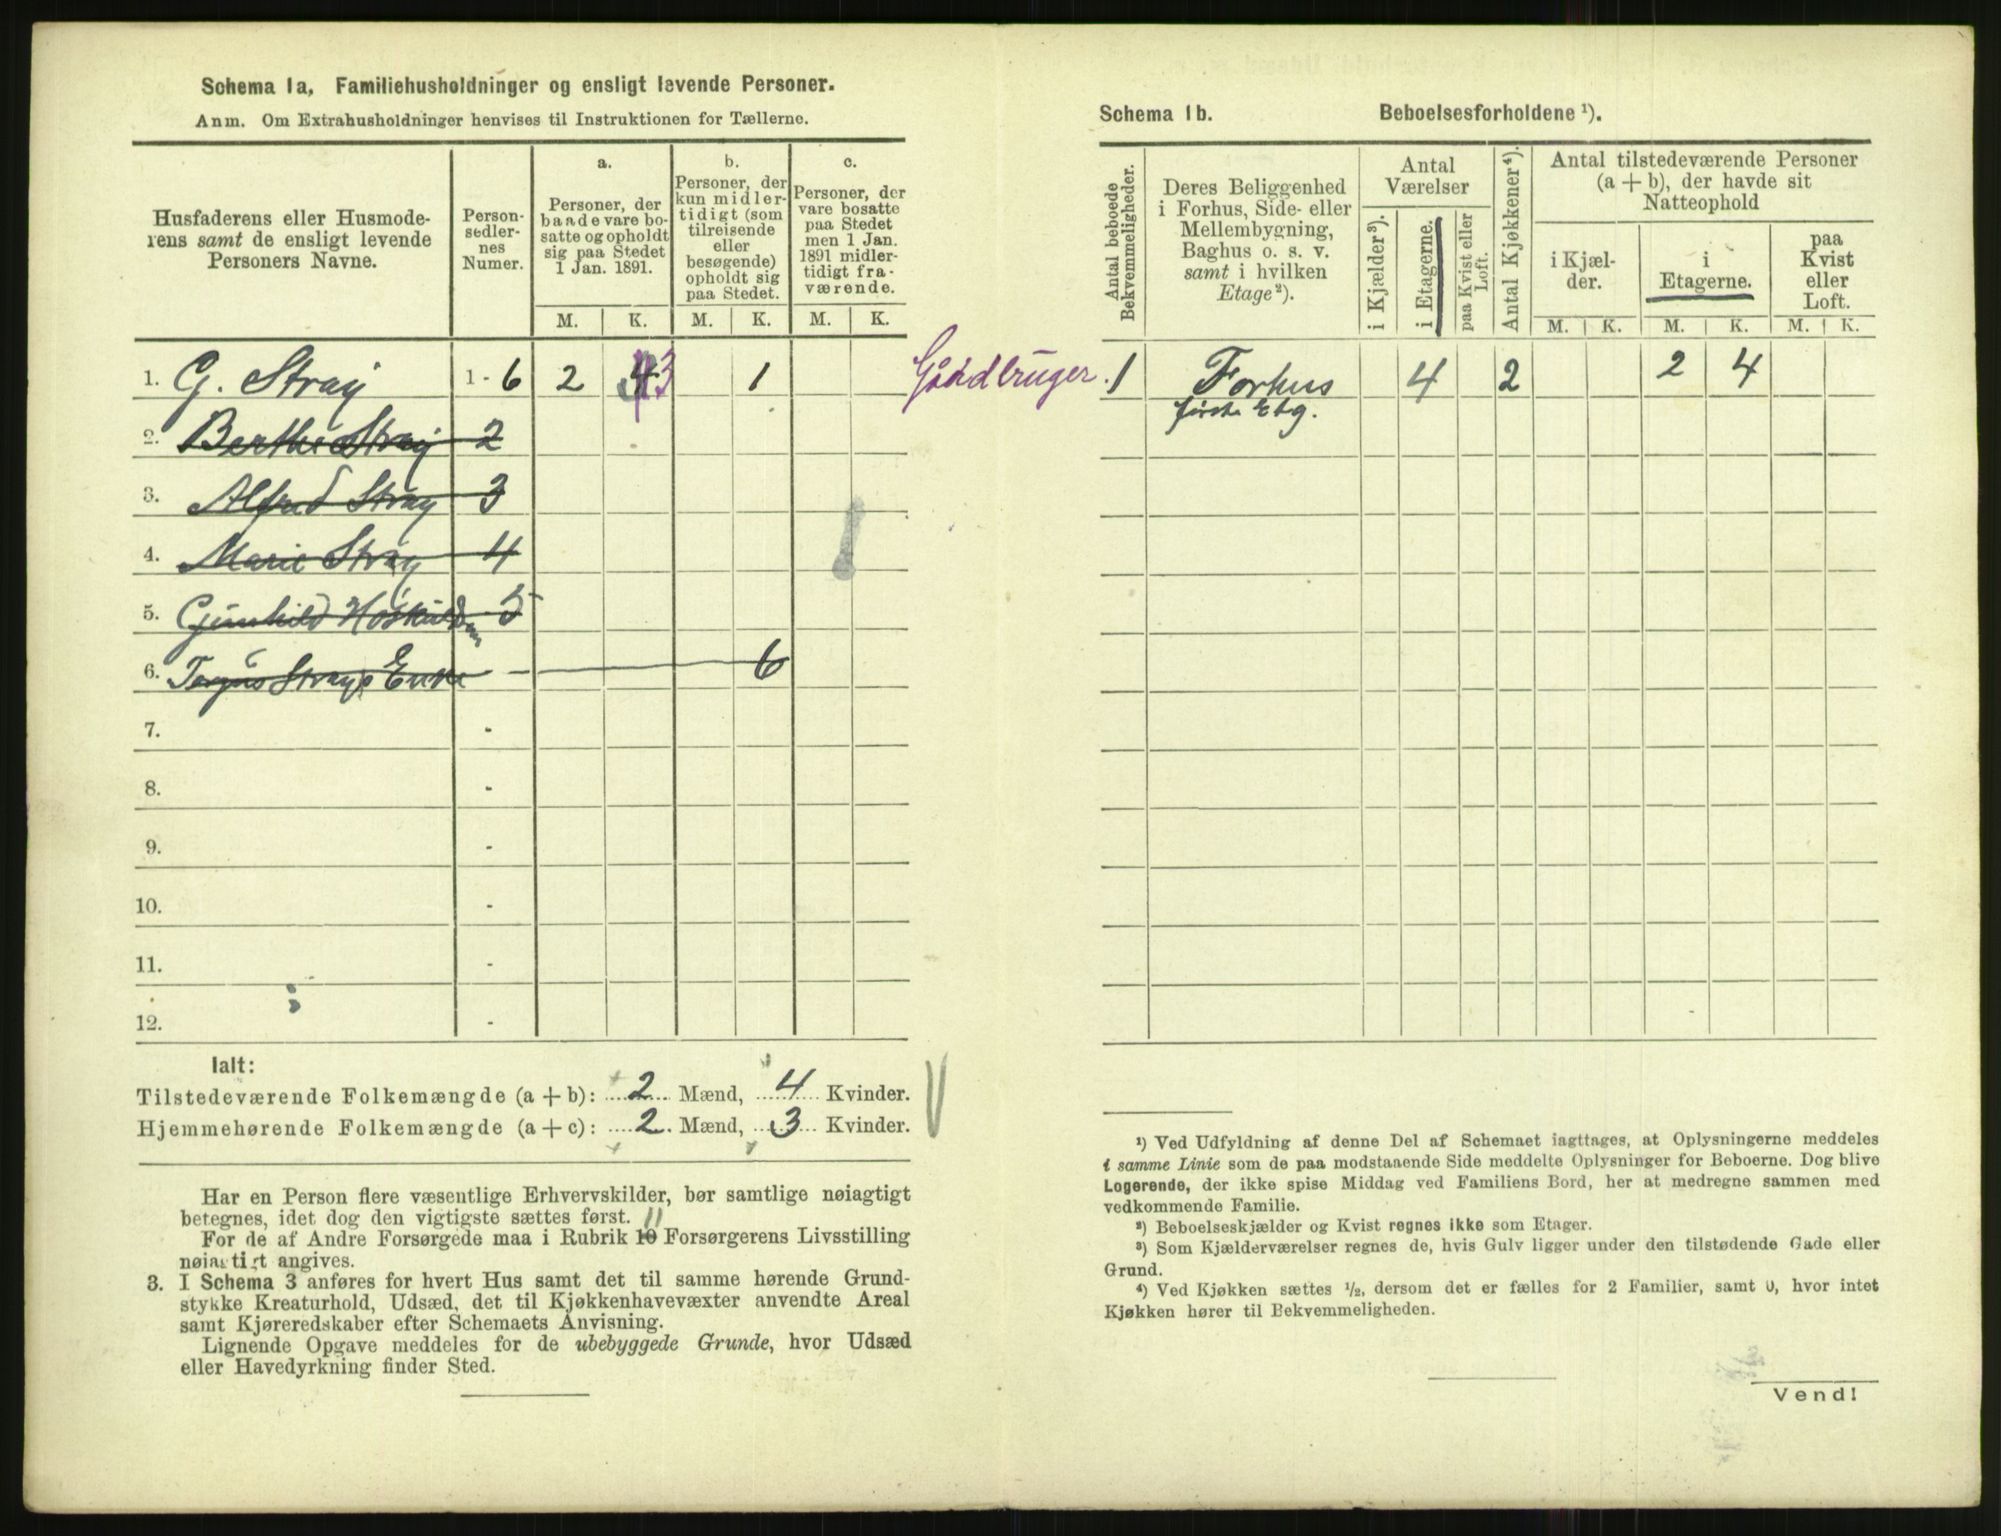 Schema 1a. Familiehusholdninger og ensligt levende Personer.
Anm. Om Extrahusholdninger henvises til Instruktionen for Tællerne.
Husfaderens eller Husmode-
rens samt de ensligt levende
Personers Navne.
Person-
sedler-
nes
Numer.
a.
Personer, der
baade vare bo-
satte og opholdt
sig paa Stedet
1 Jan. 1891.
b.
Personer, der
kun midler-
tidigt (som
tilreisende
eller
besøgende)
opholdt sig
paa Stedet.
c.
Personer, der
vare bosatte
paa Stedet
men 1 Jan.
1891 midler-
tidigt fra-
værende.
M. K. M. K. M. K.
1. G. Stray 1 - 6 2 4 3 1 Gårdbruger.
2. Berthe Stray 2
3. Alfred Stray 3
4. Marie Stray 4
5. Gunhild Høskuldsen 5
6. Terjus Strays Enke - 6
7. -
8. -
9. -
10. -
11. -
12. -
Ialt:
Tilstedeværende Folkemængde (a + b): 2 Mænd, 4 Kvinder.
Hjemmehørende Folkemængde (a + c): 2 Mænd, 3 Kvinder.
Har en Person flere væsentlige Erhvervskilder, bør samtlige nøiagtigt
betegnes, idet dog den vigtigste sættes først.
11
For de af Andre Forsørgede maa i Rubrik 10 Forsørgerens Livsstilling
nøiagtigt angives.
3. I Schema 3 anføres for hvert Hus samt det til samme hørende Grund-
stykke Kreaturhold, Udsæd, det til Kjøkkenhavevæxter anvendte Areal
samt Kjøreredskaber efter Schemaets Anvisning.
Lignende Opgave meddeles for de ubebyggede Grunde, hvor Udsæd
eller Havedyrkning finder Sted.
Schema 1b. Beboelsesforholdene ¹).
Antal beboede
Bekvemmeligheder.
Deres Beliggenhed
i Forhus, Side- eller
Mellembygning,
Baghus o. s. v.
samt i hvilken
Etage²).
Antal
Værelser
i Kjælder³).
i Etagerne.
paa Kvist eller
Loft.
Antal Kjøkkener⁴).
Antal tilstedeværende Personer
(a + b), der havde sit
Natteophold
i Kjæl-
der.
i
Etagerne.
paa
Kvist
eller
Loft.
M. K. M. K. M. K.
1 Forhus 4 2 2 4
første Etg.
¹) Ved Udfyldning af denne Del af Schemaet iagttages, at Oplysningerne meddeles
i samme Linie som de paa modstaaende Side meddelte Oplysninger for Beboerne. Dog blive
Logerende, der ikke spise Middag ved Familiens Bord, her at medregne sammen med
vedkommende Familie.
²) Beboelseskjælder og Kvist regnes ikke som Etager.
³) Som Kjælderværelser regnes de, hvis Gulv ligger under den tilstødende Gade eller
Grund.
⁴) Ved Kjøkken sættes ½, dersom det er fælles for 2 Familier, samt 0, hvor intet
Kjøkken hører til Bekvemmeligheden.
Vend!